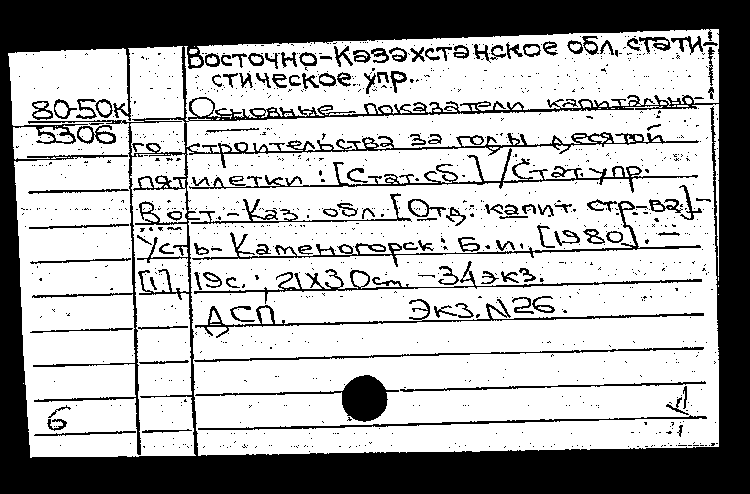 Восточно-Казахстанское обл. стати-
стическое упр.
80-50к Основные показатели капитально-
5306 го строительства за годы десятой
пятилетки : [Стат. сб.] / Стат. упр.
Вост.-Каз. обл. [Отд. капит. стр-ва]. -
Усть-Каменогорск : Б. и., [1980]. -
[1], 19 с. ; 21X30 cm. - 34 экз.
ДСП. Экз. N26.
6